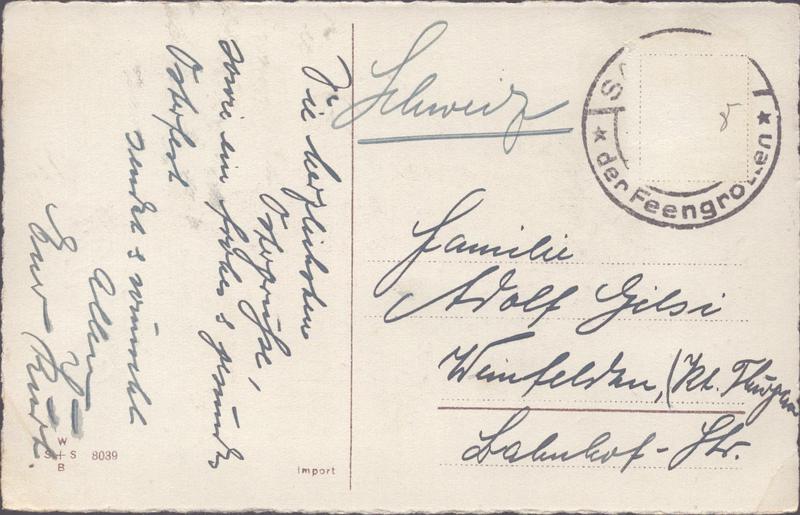 Die herzlichsten
Ostergrüße,
sowie ein frohes & gesundes
Osterfest
sendet & wünscht
Allen
Euer
Schweiz
S
der Feengrotten
Familie
Adolf Gilsi
Weinfelden, (Kt. Thurgau
Bahnhof-Str.
W
S+S 8039
B
Import